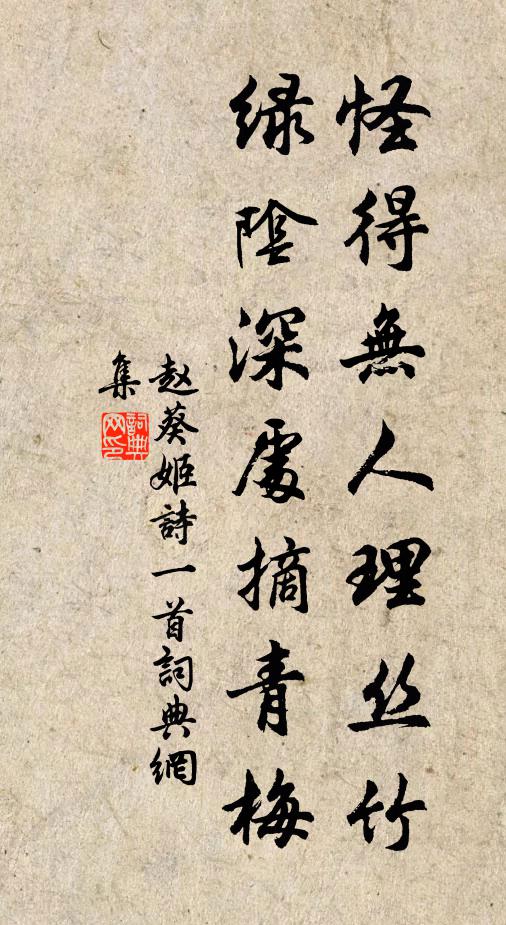 怪得無人理丝竹
绿陰深處摘青梅
赵葵姬詩一首詞典網
集
詞典网印